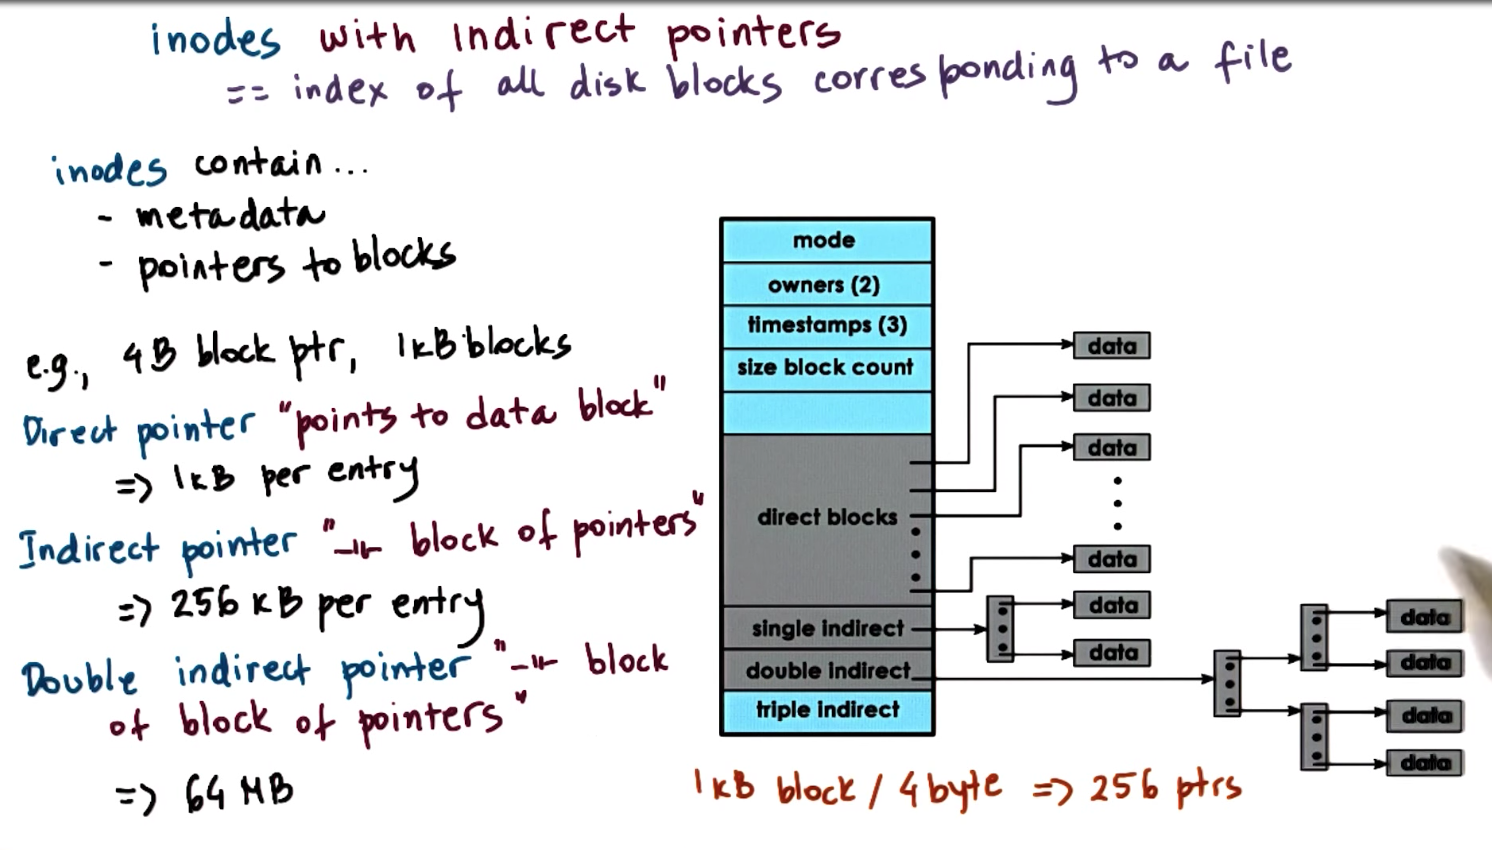 inodes with Indirect pointers
== index of all disk blocks corresponding to a file
inodes contain...
- metadata
- pointers to blocks
e.g., 4B block ptr, 1kB blocks
Direct pointer "points to data block"
=> 1kB per entry
Indirect pointer "-||- block of pointers"
=> 256 kB per entry
Double indirect pointer "-||- block
of block of pointers"
=> 64 MB
mode
owners (2)
timestamps (3)
size block count
direct blocks
single indirect
double indirect
triple indirect
data
data
data
data
data
data
data
data
data
data
1kB block / 4 byte => 256 ptrs